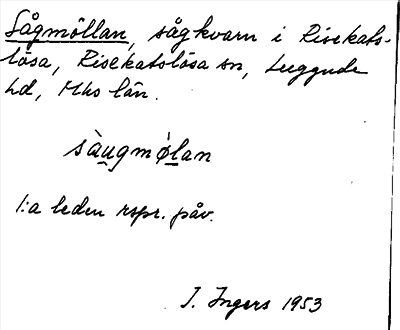 Sågmöllan, sågkvarn i Risekats-
lösa, Risekatslösa sn, Luggude
hd, Mhs län.
sàu̲gmö́l̲an
1:a leden rspr. påv.
I. Ingers 1953